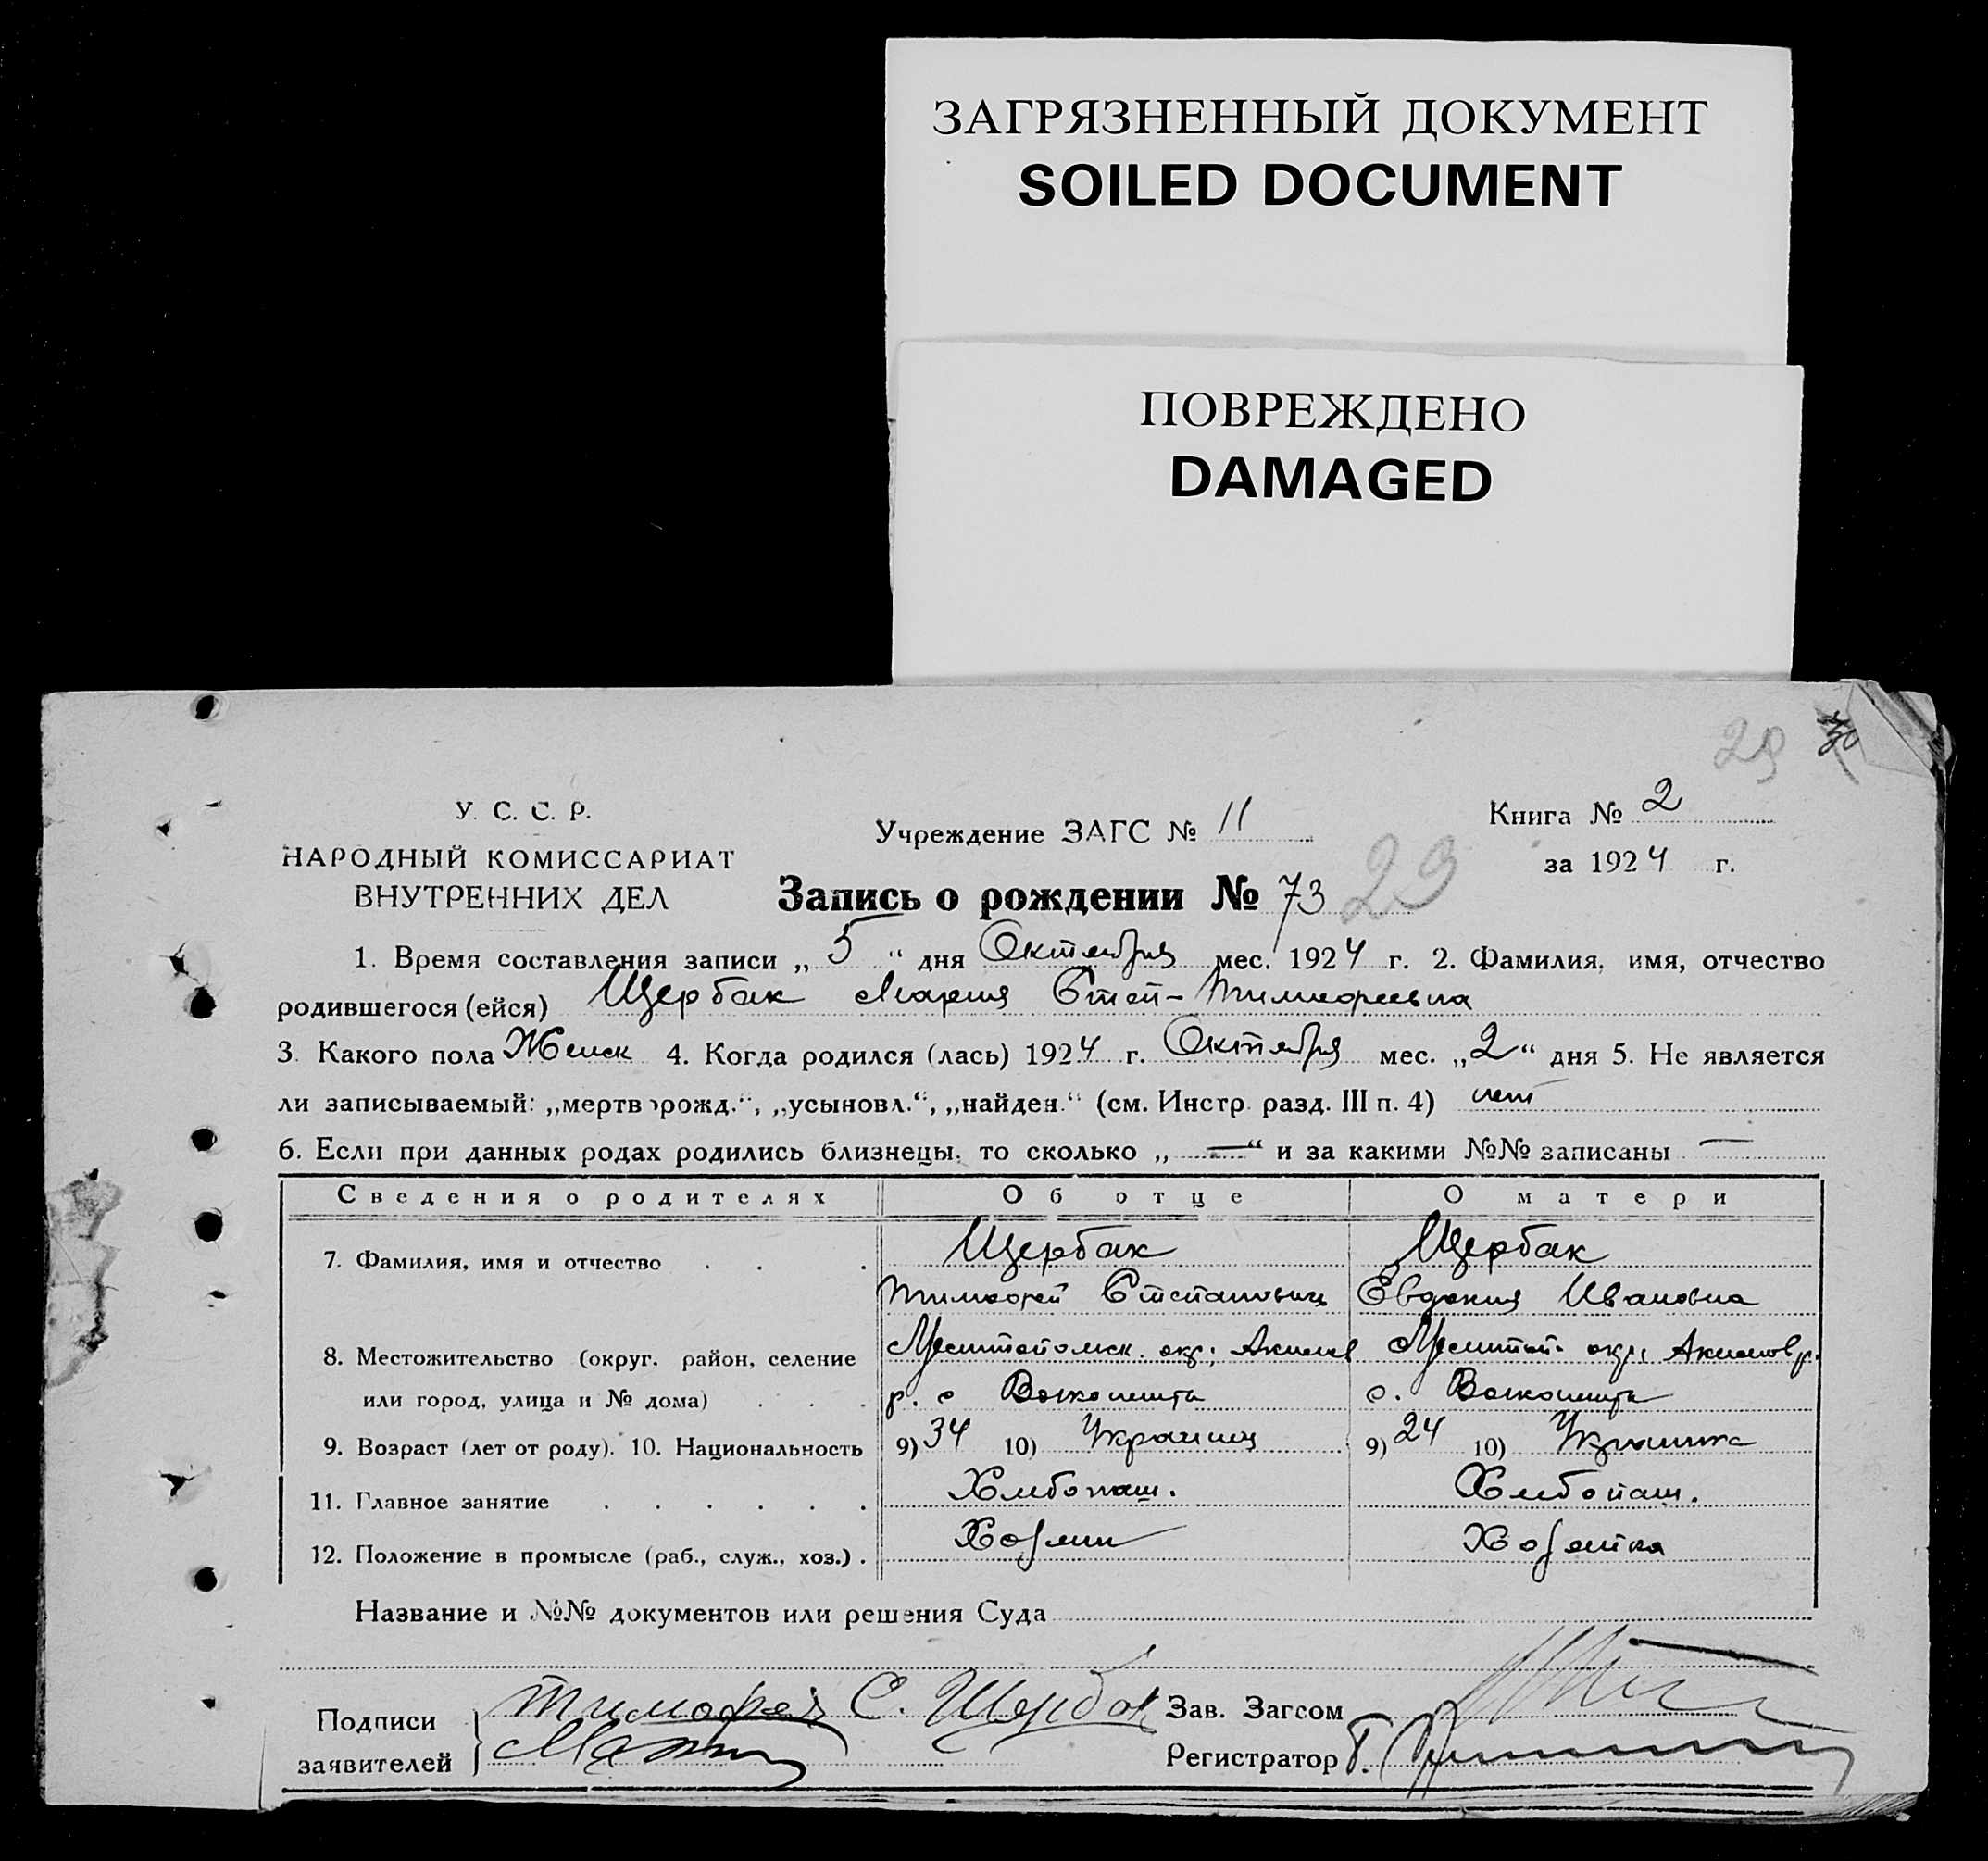 ЗАГРЯЗНЕННЫЙ ДОКУМЕНТ
SOILED DOCUMENT
ПОВРЕЖДЕНО
DAMAGED
29 30
У. С. С. Р.
НАРОДНЫЙ КОМИССАРИАТ
ВНУТРЕННИХ ДЕЛ
Учреждение ЗАГС № 11
Книга № 2
за 1924 г.
Запись о рождении № 73 29
1. Время составления записи „ 5 “ дня Октября мес. 1924 г. 2. Фамилия, имя, отчество
родившегося (ейся) Щербак Мария Степ- Тимофеевна
3. Какого пола Женск 4. Когда родился (лась) 1924 г. Октября мес. „ 2 “ дня 5. Не является
ли записываемый: „мертворожд.“, „усыновл.“, „найден.“ (см. Инстр. разд. III п. 4) нет
6. Если при данных родах родились близнецы, то сколько „ — “ и за какими №№ записаны —
Сведения о родителях Об отце О матери
7. Фамилия, имя и отчество . . . Щербак Щербак
Тимофей Степанович Евдокия Ивановна
8. Местожительство (округ. район, селение Мелитопольск. окр., Акимов Мелитоп. окр., Акимов р.
или город, улица и № дома) . . . р. с с.
9. Возраст (лет от роду). 10. Национальность 9) 34 10) Украинец 9) 24 10) Украинка
11. Главное занятие . . . . . . Хлебопаш. Хлебопаш.
12. Положение в промысле (раб., служ., хоз.) . Хозяин Хозяйка
Название и №№ документов или решения Суда
Подписи Тимофей С. Щербак Зав. Загсом
заявителей Регистратор